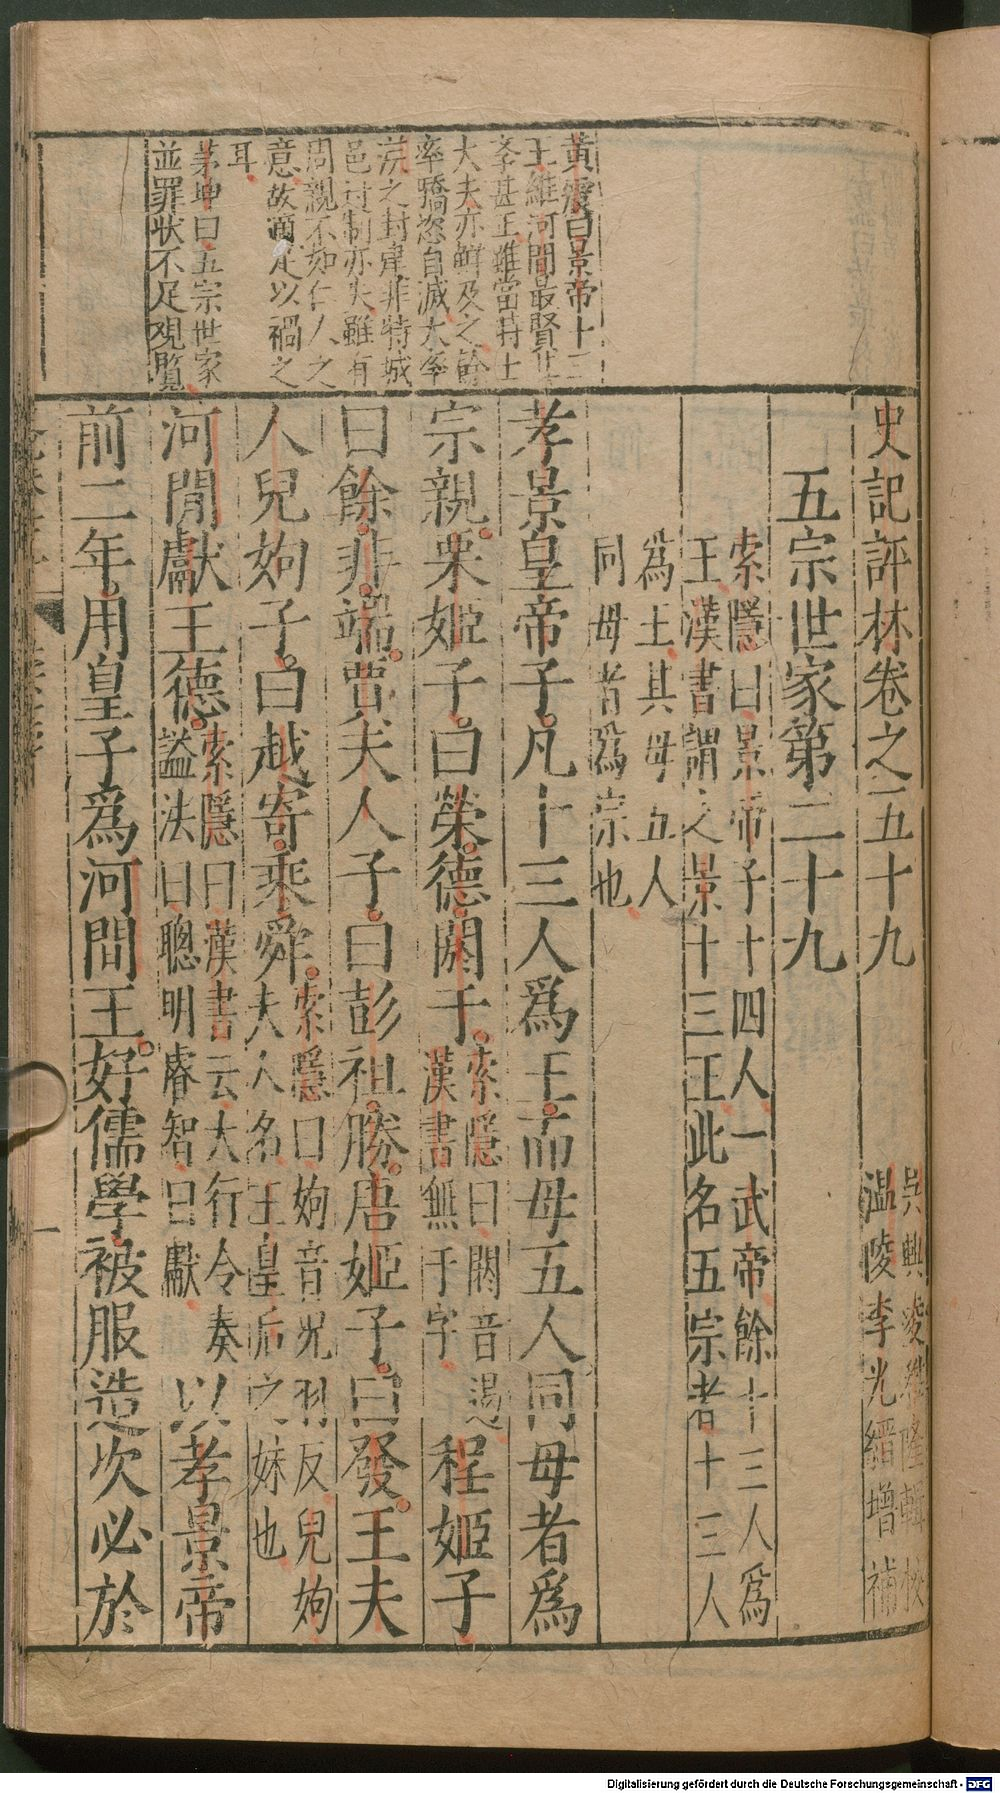 史記評林卷之五十九
吳興凌稚隆輯校
温陵李光縉增補
五宗世家第二十九
索隱曰景帝子十四人一武帝餘十三人爲
王漢書謂之景十三王此名五宗者十三人
爲王其母五人
同母者爲宗也
孝景皇帝子凡十三人爲王而母五人同母者爲
宗親栗姬子曰榮德閼于索隱曰閼音遏
漢書無于字程姬子
曰餘非端賈夫人子曰彭祖勝唐姬子曰發王夫
人兒姁子曰越寄乘舜索隱曰姁音况羽反兒姁
夫人名王皇后之妹也
河閒獻王德索隱曰漢書云大行令奏
謚法曰聰明睿智曰獻以孝景帝
前二年用皇子爲河間王好儒學被服造次必於
黄震曰景帝十三
王維河間最賢
李甚正雖當時士
大夫亦鮮及之餘
率驕恣自滅大率
漢之封建非特城
邑过制亦失雖有
周親不如仁人之
意故適足以禍之
耳
茅坤曰五宗世家
並罪狀不足观覽
一
Digitalisierung gefördert durch die Deutsche Forschungsgemeinschaft - DFG